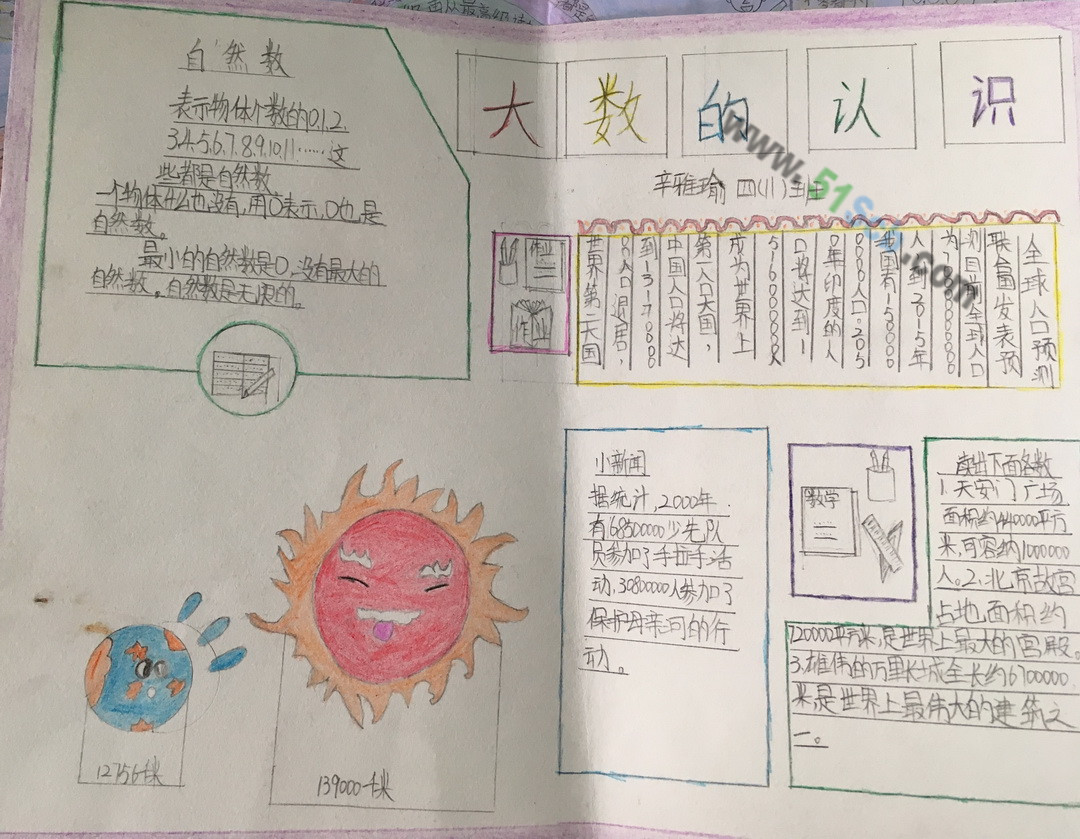 自然数
表示物体个数的0.1.2.
3.4.5.6.7.8.9.10.11……这
些都是自然数.
一个物体也没有,用0表示,0也是
自然数。
最小的自然数是0,没有最大的
自然数。自然数是无限的。
大数的认识
辛雅瑜 四(1)班
www.51
.com
全球人口预测
联合国发表预
测目前全球人口
为
人到2015年
我国有15000
000人口。205
0年印度的人
口将达到1
516000000人
成为世界上
第一人口大国,
中国人口将达
到1317000
000人退居,
世界第二大国
作业
作业
小新闻
据统计,2000年
有6850000少先队
员参加了手拉手活
动,3080000人参加了
保护母亲河的行
动。
数学
读出下面各数
1.天安门广场
面积约440000平方
米,可容纳1000000
人。2.北京故宫
占地面积约
720000平方米,是世界上最大的宫殿。
3.雄伟的万里长城全长约6700000
米,是世界上最伟大的建筑之
一。
12756千米
139000千米